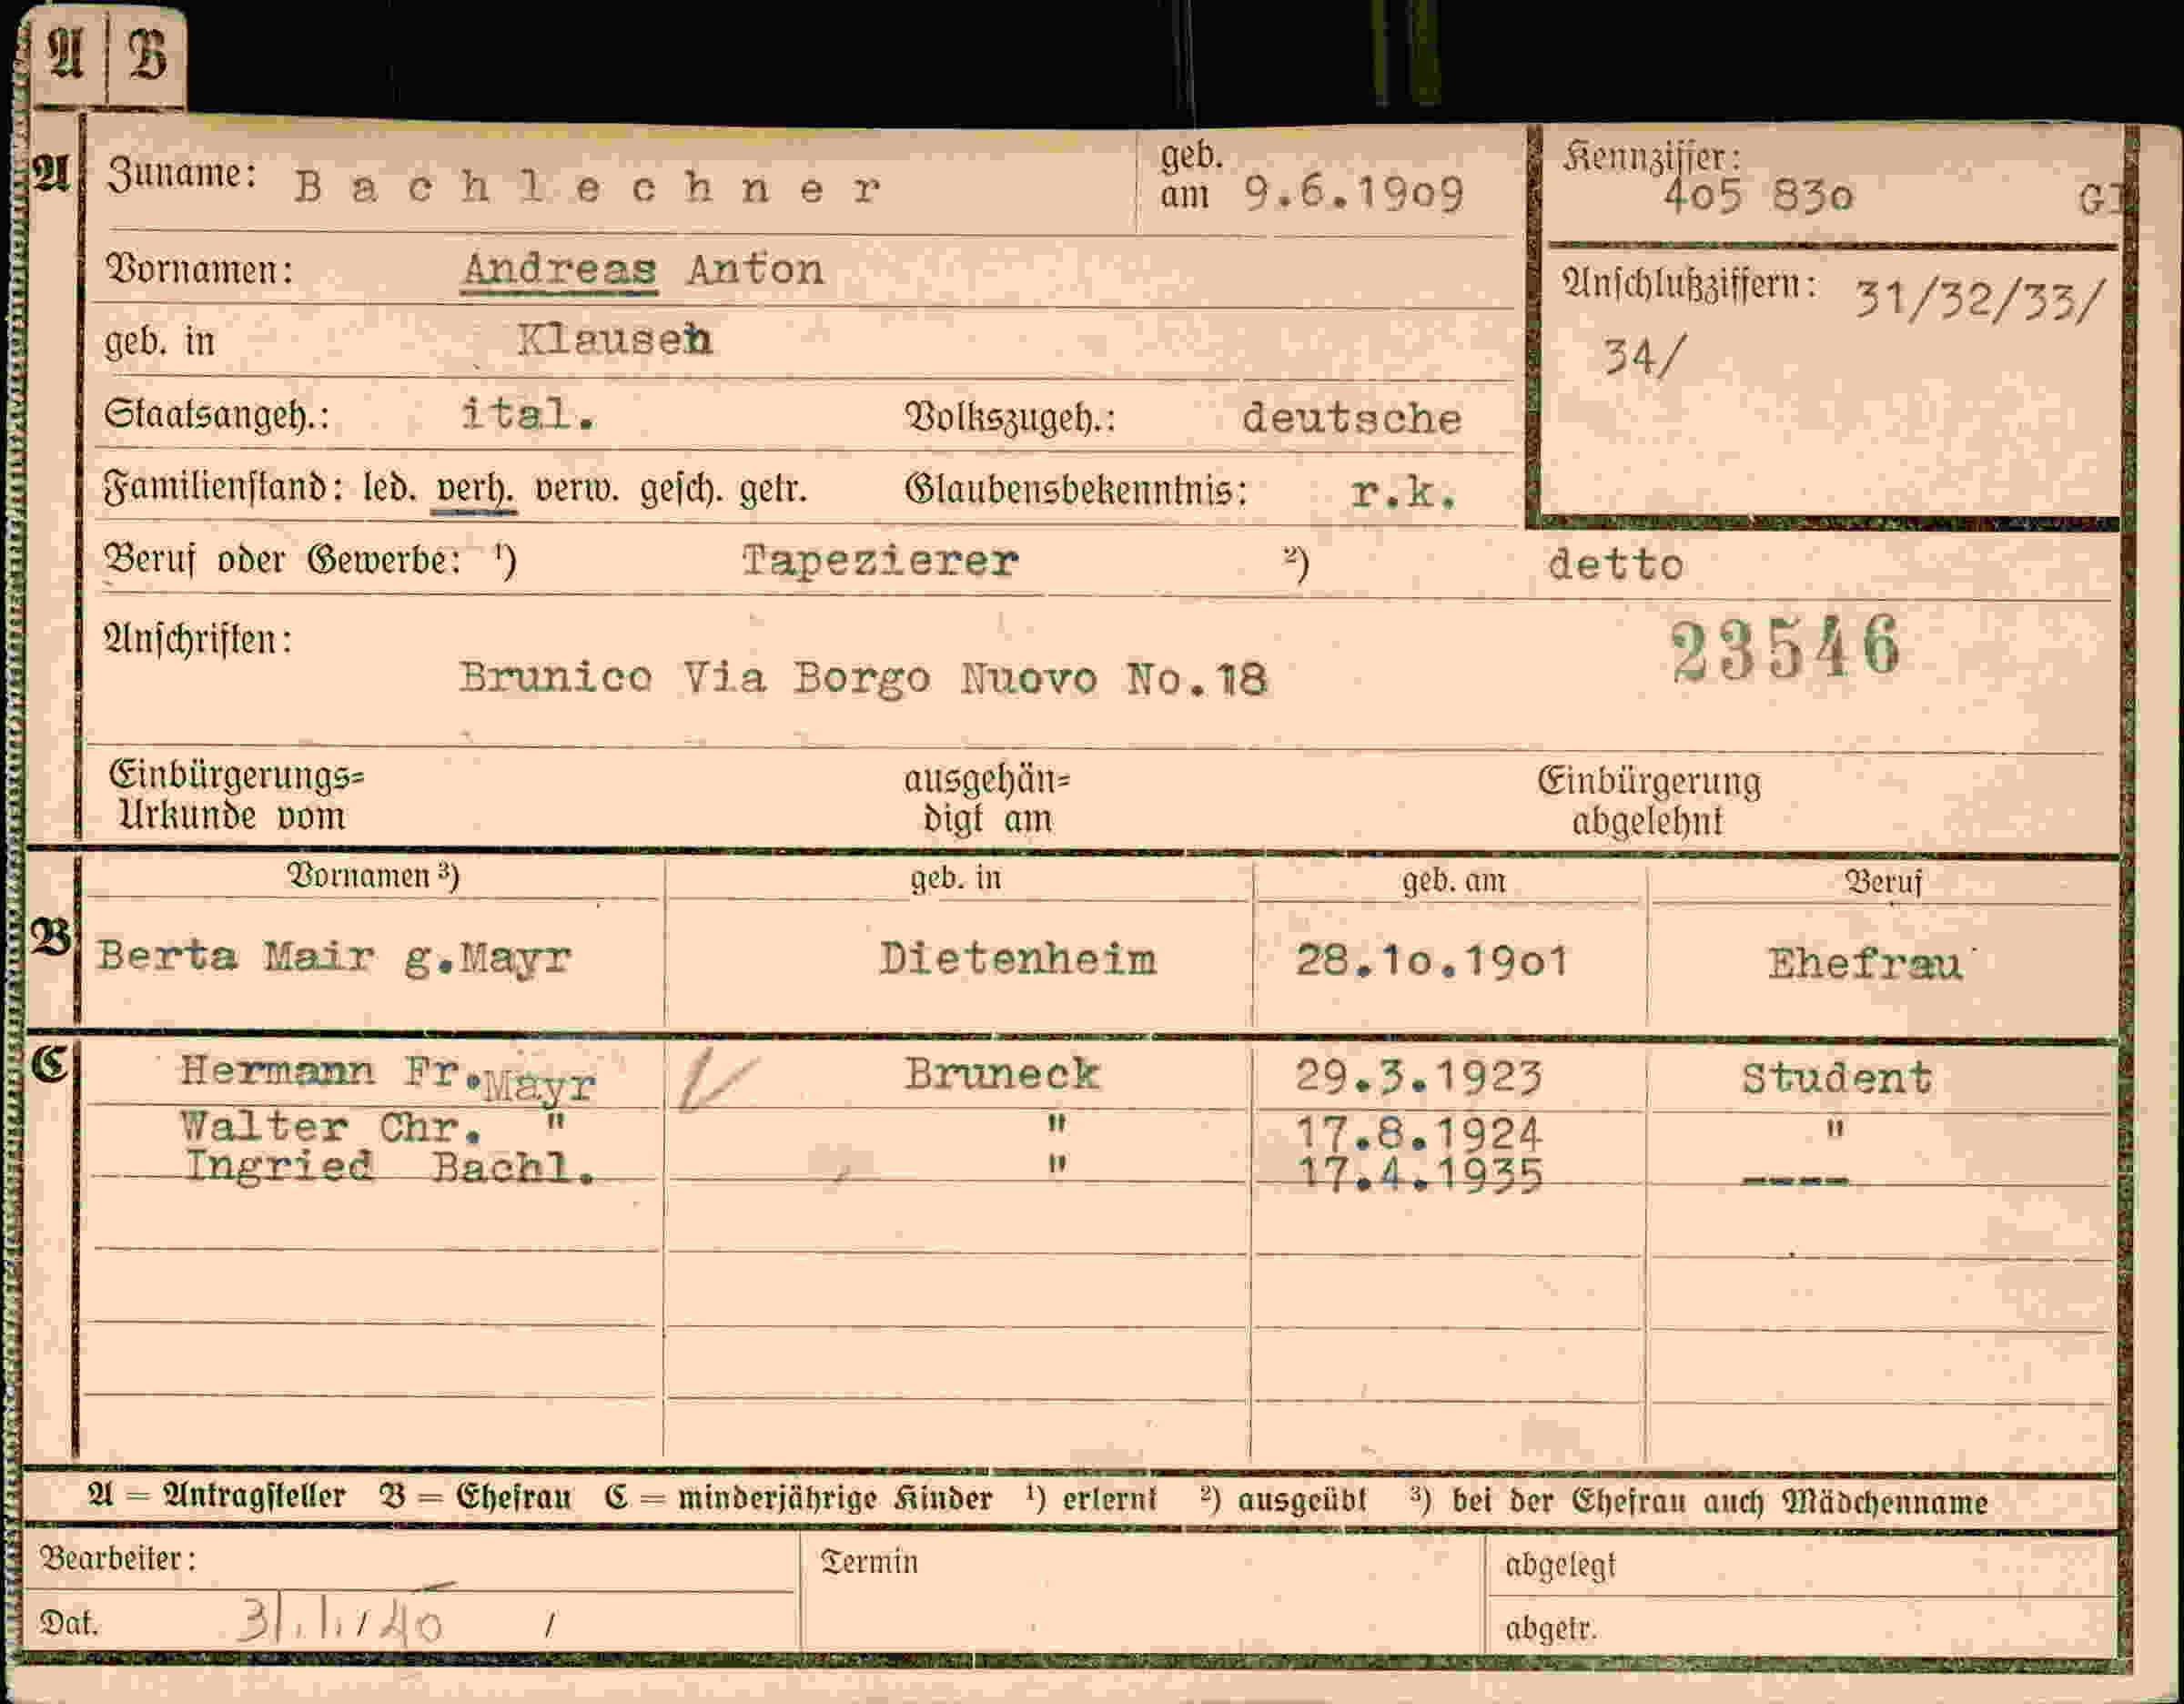 A B
A Zuname: Bachlechner geb. am 9.6.1909 Kennziffer: 405 830
Vornamen: Andreas Anton Anschlußziffern: 31/32/33/
34/
geb. in Klausen
Staatsangeh.: ital. Volkszugeh.: deutsche
Familienstand: led. verh. verw. gesch. getr. Glaubensbekenntnis: r.k.
Beruf oder Gewerbe: ¹) Tapezierer ²) detto
Anschriften: 23546
Brunico Via Borgo Nuovo No.18
Einbürgerungs= ausgehän= Einbürgerung
Urkunde vom digt am abgelehnt
Vornamen ³) geb. in geb. am Beruf
B Berta Mair g.Mayr Dietenheim 28.10.1901 Ehefrau
C Hermann Fr.Mayr Bruneck 29.3.1923 Student
Walter Chr. " " 17.8.1924 "
Ingried Bachl. " 17.4.1935 ----
A = Antragsteller B = Ehefrau C = minderjährige Kinder ¹) erlernt ²) ausgeübt ³) bei der Ehefrau auch Mädchenname
Bearbeiter: Termin abgelegt
Dat. 31.1./40 / abgetr.